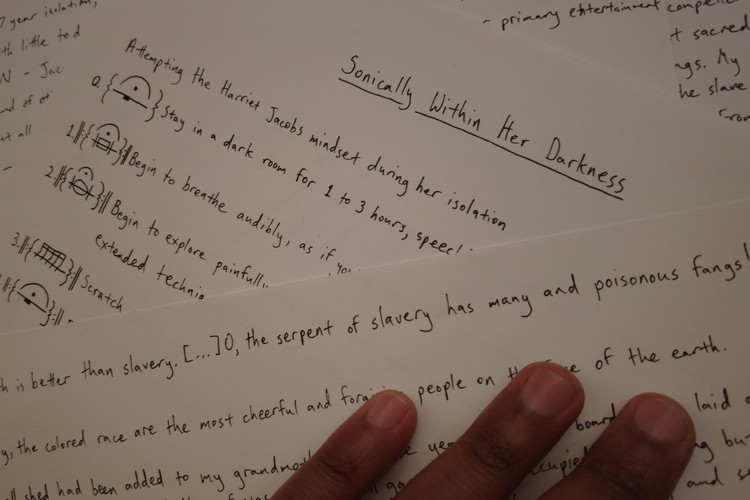 7 year isolation,
with little to d
N - Jac
at all
- primary entertainment
t sacred
ngs. My
he slave
Sonically Within Her Darkness
Attempting the Harriet Jacobs mindset during her isolation
0. Stay in a dark room for 1 to 3 hours,
1. Begin to breathe audibly, as if you
2. Begin to explore
extended
3. Scratch
is better than slavery. [...] O, the serpent of slavery has many and poisonous fangs!
the colored race are the most cheerful and people on of the earth.
shed had been added to my board laid
and